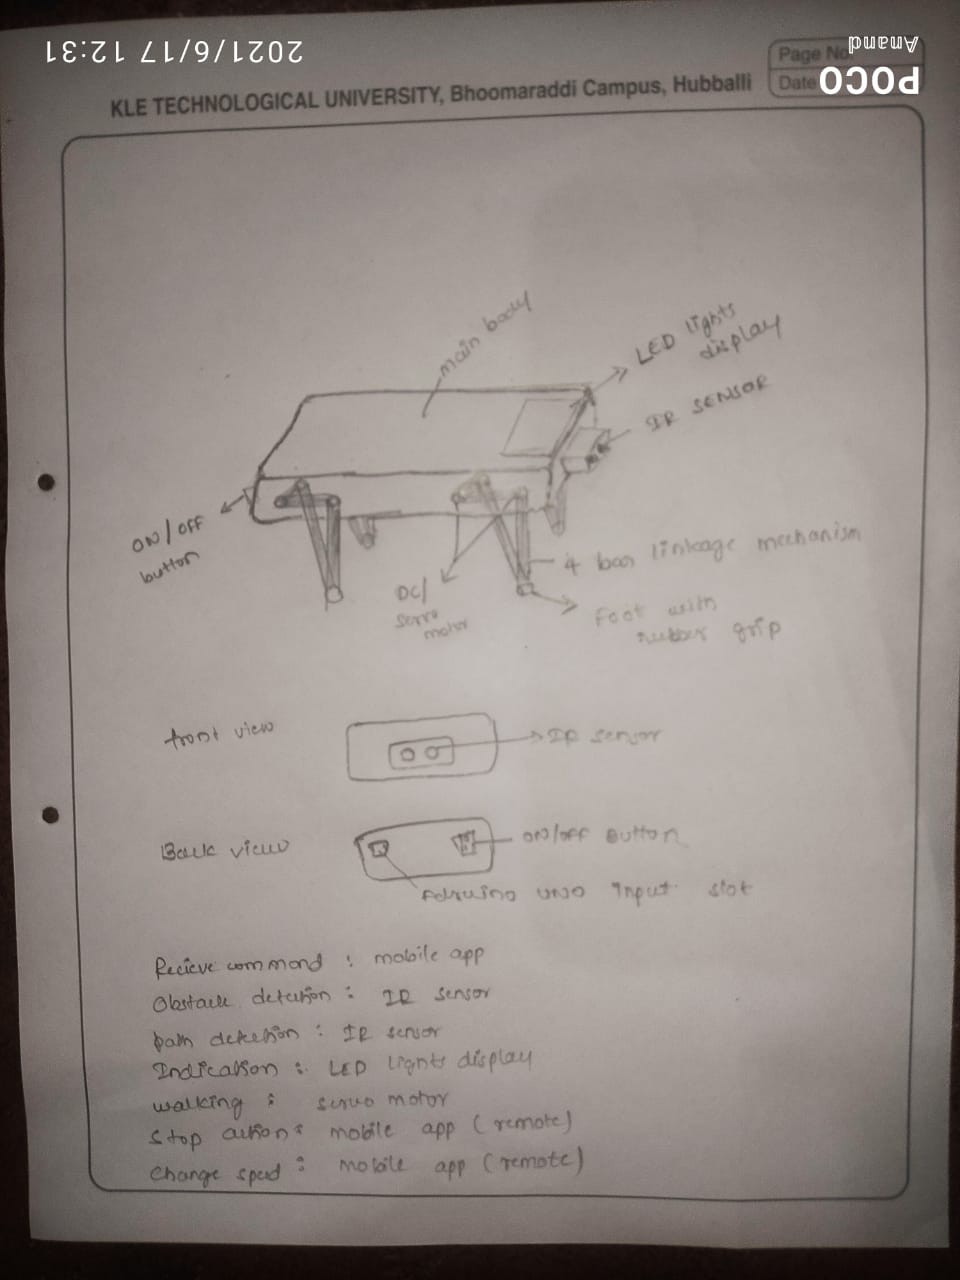 2021/6/17 12:31
Anand
POCO
Page No.
Date
KLE TECHNOLOGICAL UNIVERSITY, Bhoomaraddi Campus, Hubballi
main body
LED lights
display
IR SENSOR
ON/OFF
button
DC/
servo
motor
4 bar linkage mechanism
Foot with
rubber grip
front view
IR sensor
Back view
ON/OFF Button
Adruino UNO Input slot
Recieve command : mobile app
Obstacle detection : IR sensor
path detection : IR sensor
Indication : LED lights display
walking : servo motor
Stop action : mobile app (remote)
Change speed : mobile app (remote)